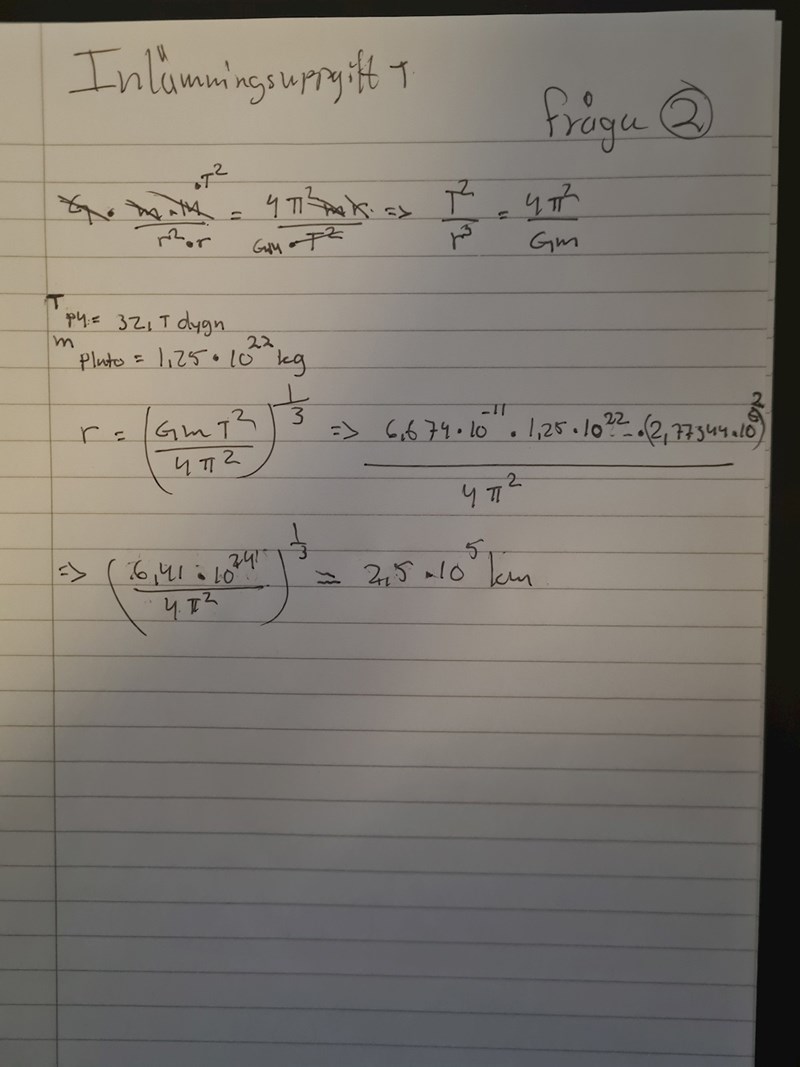 Inlämningsuppgift 1
fråga 2
G · m · M · T² / r² · r = 4π² m r / GM · T² => T² / r³ = 4π² / Gm
T P4 = 32,1 dygn
m Pluto = 1,25 · 10²² kg
r = (GmT² / 4π²)^(1/3) => 6,674 · 10⁻¹¹ · 1,25 · 10²² · (2,77344 · 10⁶)² / 4π²
=> (6,41 · 10²⁴ / 4π²)^(1/3) = 2,5 · 10⁵ km